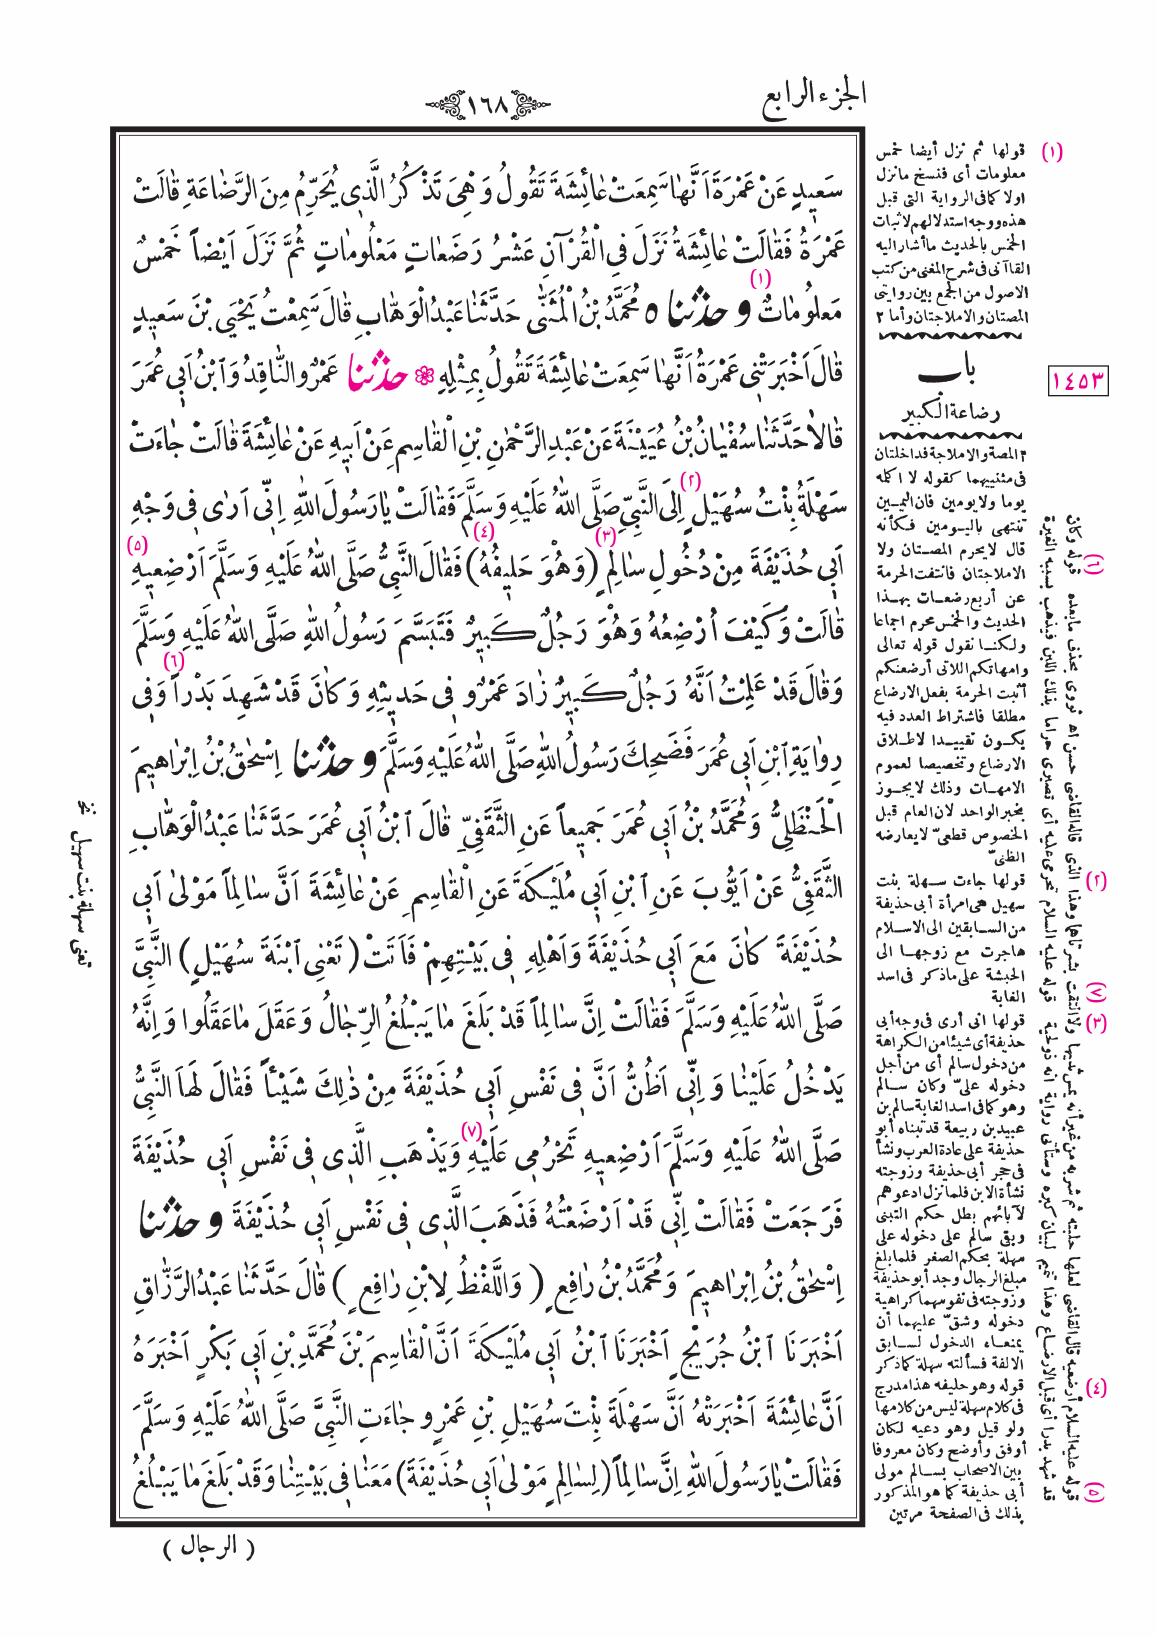 الجزء الرابع
١٦٨
سَعِيدٍ عَنْ عَمْرَةَ اَنَّهَا سَمِعَتْ عَائِشَةَ تَقُولُ وَهِىَ تَذْكُرُ الَّذِى يُحَرِّمُ مِنَ الرَّضَاعَةِ قَالَتْ
عَمْرَةُ فَقَالَتْ عَائِشَةُ نَزَلَ فِى الْقُرْآنِ عَشْرُ رَضَعَاتٍ مَعْلُومَاتٍ ثُمَّ نَزَلَ اَيْضاً خَمْسٌ
مَعْلُومَاتٌ (١) و حدثنا ه مُحَمَّدُ بْنُ الْمُثَنَّى حَدَّثَنَا عَبْدُ الْوَهَّابِ قَالَ سَمِعْتُ يَحْيَى بْنَ سَعِيدٍ
قَالَ اَخْبَرَتْنِى عَمْرَةُ اَنَّهَا سَمِعَتْ عَائِشَةَ تَقُولُ بِمِثْلِهِ ❁ حدثنا عَمْرٌو النَّاقِدُ وَابْنُ اَبِى عُمَرَ
قَالَا حَدَّثَنَا سُفْيَانُ بْنُ عُيَيْنَةَ عَنْ عَبْدِ الرَّحْمٰنِ بْنِ الْقَاسِمِ عَنْ اَبِيهِ عَنْ عَائِشَةَ قَالَتْ جَاءَتْ
سَهْلَةُ بِنْتُ سُهَيْلٍ (٢) اِلَى النَّبِيِّ صَلَّى اللهُ عَلَيْهِ وَسَلَّمَ فَقَالَتْ يَا رَسُولَ اللهِ اِنِّى اَرٰى فِى وَجْهِ
اَبِى حُذَيْفَةَ مِنْ دُخُولِ سَالِمٍ (٣) (وَهُوَ حَلِيفُهُ) (٤) فَقَالَ النَّبِيُّ صَلَّى اللهُ عَلَيْهِ وَسَلَّمَ اَرْضِعِيهِ (٥)
قَالَتْ وَكَيْفَ اُرْضِعُهُ وَهُوَ رَجُلٌ كَبِيرٌ فَتَبَسَّمَ رَسُولُ اللهِ صَلَّى اللهُ عَلَيْهِ وَسَلَّمَ
وَقَالَ قَدْ عَلِمْتُ اَنَّهُ رَجُلٌ كَبِيرٌ زَادَ عَمْرٌو فِى حَدِيثِهِ وَكَانَ قَدْ شَهِدَ بَدْراً (٦) وَفِى
رِوَايَةِ ابْنِ اَبِى عُمَرَ فَضَحِكَ رَسُولُ اللهِ صَلَّى اللهُ عَلَيْهِ وَسَلَّمَ و حدثنا اِسْحٰقُ بْنُ اِبْرَاهِيمَ
الْحَنْظَلِىُّ وَمُحَمَّدُ بْنُ اَبِى عُمَرَ جَمِيعاً عَنِ الثَّقَفِىِّ قَالَ ابْنُ اَبِى عُمَرَ حَدَّثَنَا عَبْدُ الْوَهَّابِ
الثَّقَفِىُّ عَنْ اَيُّوبَ عَنِ ابْنِ اَبِى مُلَيْكَةَ عَنِ الْقَاسِمِ عَنْ عَائِشَةَ اَنَّ سَالِماً مَوْلٰى اَبِى
حُذَيْفَةَ كَانَ مَعَ اَبِى حُذَيْفَةَ وَاَهْلِهِ فِى بَيْتِهِمْ فَاَتَتْ (تَعْنِى ابْنَةَ سُهَيْلٍ) النَّبِىَّ
صَلَّى اللهُ عَلَيْهِ وَسَلَّمَ فَقَالَتْ اِنَّ سَالِماً قَدْ بَلَغَ مَا يَبْلُغُ الرِّجَالُ وَعَقَلَ مَا عَقَلُوا وَاِنَّهُ
يَدْخُلُ عَلَيْنَا وَ اِنِّى اَظُنُّ اَنَّ فِى نَفْسِ اَبِى حُذَيْفَةَ مِنْ ذٰلِكَ شَيْئاً فَقَالَ لَهَا النَّبِىُّ
صَلَّى اللهُ عَلَيْهِ وَسَلَّمَ اَرْضِعِيهِ تَحْرُمِى عَلَيْهِ (٧) وَيَذْهَبِ الَّذِى فِى نَفْسِ اَبِى حُذَيْفَةَ
فَرَجَعَتْ فَقَالَتْ اِنِّى قَدْ اَرْضَعْتُهُ فَذَهَبَ الَّذِى فِى نَفْسِ اَبِى حُذَيْفَةَ و حدثنا
اِسْحٰقُ بْنُ اِبْرَاهِيمَ وَمُحَمَّدُ بْنُ رَافِعٍ (وَاللَّفْظُ لِابْنِ رَافِعٍ) قَالَ حَدَّثَنَا عَبْدُ الرَّزَّاقِ
اَخْبَرَنَا ابْنُ جُرَيْجٍ اَخْبَرَنَا ابْنُ اَبِى مُلَيْكَةَ اَنَّ الْقَاسِمَ بْنَ مُحَمَّدِ بْنِ اَبِى بَكْرٍ اَخْبَرَهُ
اَنَّ عَائِشَةَ اَخْبَرَتْهُ اَنَّ سَهْلَةَ بِنْتَ سُهَيْلِ بْنِ عَمْرٍو جَاءَتِ النَّبِىَّ صَلَّى اللهُ عَلَيْهِ وَسَلَّمَ
فَقَالَتْ يَا رَسُولَ اللهِ اِنَّ سَالِماً (لِسَالِمٍ مَوْلٰى اَبِى حُذَيْفَةَ) مَعَنَا فِى بَيْتِنَا وَقَدْ بَلَغَ مَا يَبْلُغُ
(الرجال)
(١) قولها ثم نزل أيضا خمس
معلومات أى فنسخ ما نزل
اولا كما فى الرواية التى قبل
هذه ووجه استدلالهم لاثبات
الخمس بالحديث ما أشار اليه
القاآنى فى شرح المغنى من كتب
الاصول من الجمع بين روايتى
المصتان والاملاجتان وأما ٢
١٤٥٣
باب
رضاعة الكبير
٢ المصة والاملاجة فداخلتان
فى مثنييهما كقوله لا اكله
يوما ولا يومين فان اليمين
تنتهى باليومين فكأنه
قال لا يحرم المصتان ولا
الاملاجتان فانتفت الحرمة
عن أربع رضعات بهذا
الحديث والخمس محرم اجماعا
ولكنا نقول قوله تعالى
وامهاتكم اللاتى أرضعنكم
أثبت الحرمة بفعل الارضاع
مطلقا فاشتراط العدد فيه
يكون تقييدا لاطلاق
الارضاع وتخصيصا لعموم
الامهات وذلك لا يجوز
بخبر الواحد لان العام قبل
الخصوص قطعىّ لا يعارضه
الظنىّ
(٢) قولها جاءت سهلة بنت
سهيل هى امرأة أبى حذيفة
من السابقين الى الاسلام
هاجرت مع زوجها الى
الحبشة على ما ذكر فى اسد
الغابة
(٣) قولها انى أرى فى وجه أبى
حذيفة أى شيئا من الكراهة
من دخول سالم أى من أجل
دخوله علىّ وكان سالم
وهو كما فى اسد الغابة سالم بن
عبيد بن ربيعة قد تبناه أبو
حذيفة على عادة العرب ونشأ
فى حجر أبى حذيفة وزوجته
نشأة الابن فلما نزل ادعوهم
لآبائهم بطل حكم التبنى
وبقى سالم على دخوله على
سهلة بحكم الصغر فلما بلغ
مبلغ الرجال وجد أبو حذيفة
وزوجته فى نفوسهما كراهية
دخوله وشقّ عليهما أن
يمنعاه الدخول لسابق
الالفة فسألته سهلة كما ذكر
(٤) قوله وهو حليفه هذا مدرج
فى كلام سهلة ليس من كلامها
ولو قيل وهو دعيه لكان
أوفق وأوضح وكان معروفا
بين الاصحاب بسالم مولى
أبى حذيفة كما هو المذكور
بذلك فى الصفحة مرتين
(٥) قوله عليه السلام أرضعيه قال القاضى لعلها حلبته ثم شربه من غير أنه يمص ثديها ولا التقت بشرتاهما وهذا الذى قاله القاضى حسن اه نووى بحذف ما بعده (٦) قوله وكان
قد شهد بدرا أى قبل الارضاع وهذا تتميم لبيان كبره وستأتى رواية انه ذو لحية (٧) قوله عليه السلام تحرمى عليه أى تصيرى حراما بذلك اللبن فيذهب بسببه الغيرة
تعنى سهلة بنت سهيل نخ